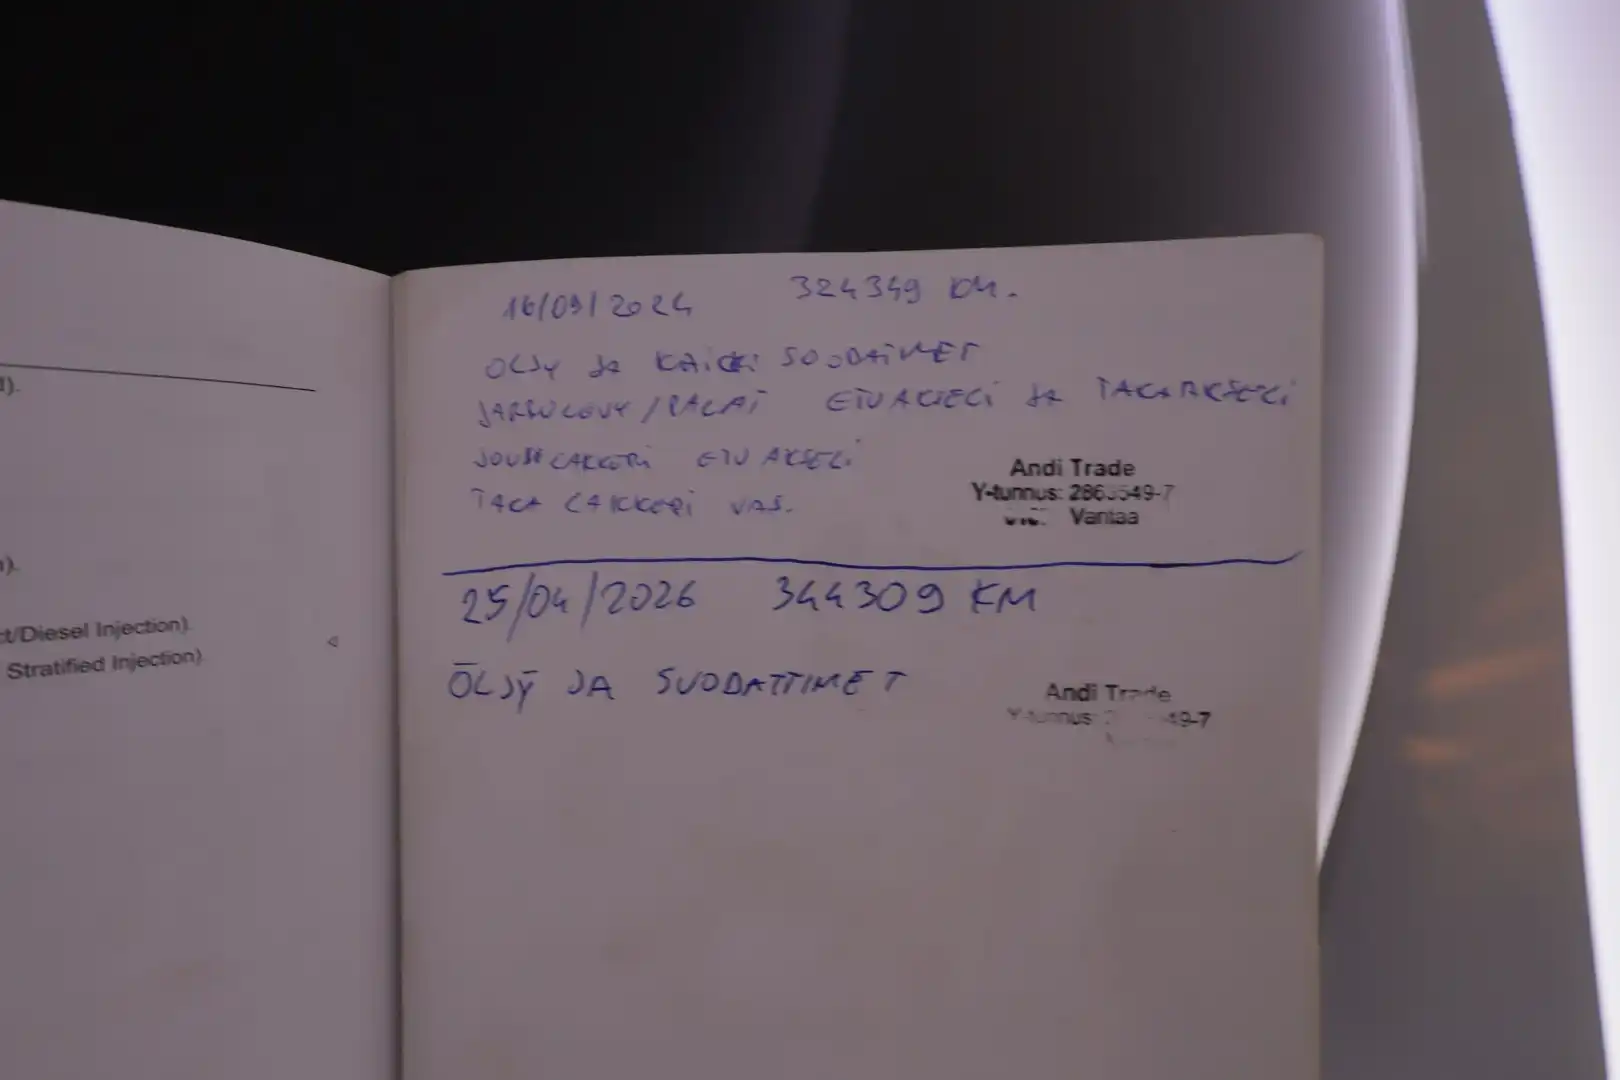 t/Diesel Injection)
Stratified Injection)
16/09/2024 324349 KM.
OLJY JA KAIKKI SUODATIMET
JARRULEVY/PALAT ETUAKSELI JA TAKAAKSELI
ETU AKSELI
TAKA LAKKERI VAS.
Andi Trade
Y-tunnus: 49-7
Vantaa
25/04/2026 344309 KM
ÖLJY JA SUODATTIMET
Andi Trade
Y-tunnus: 49-7